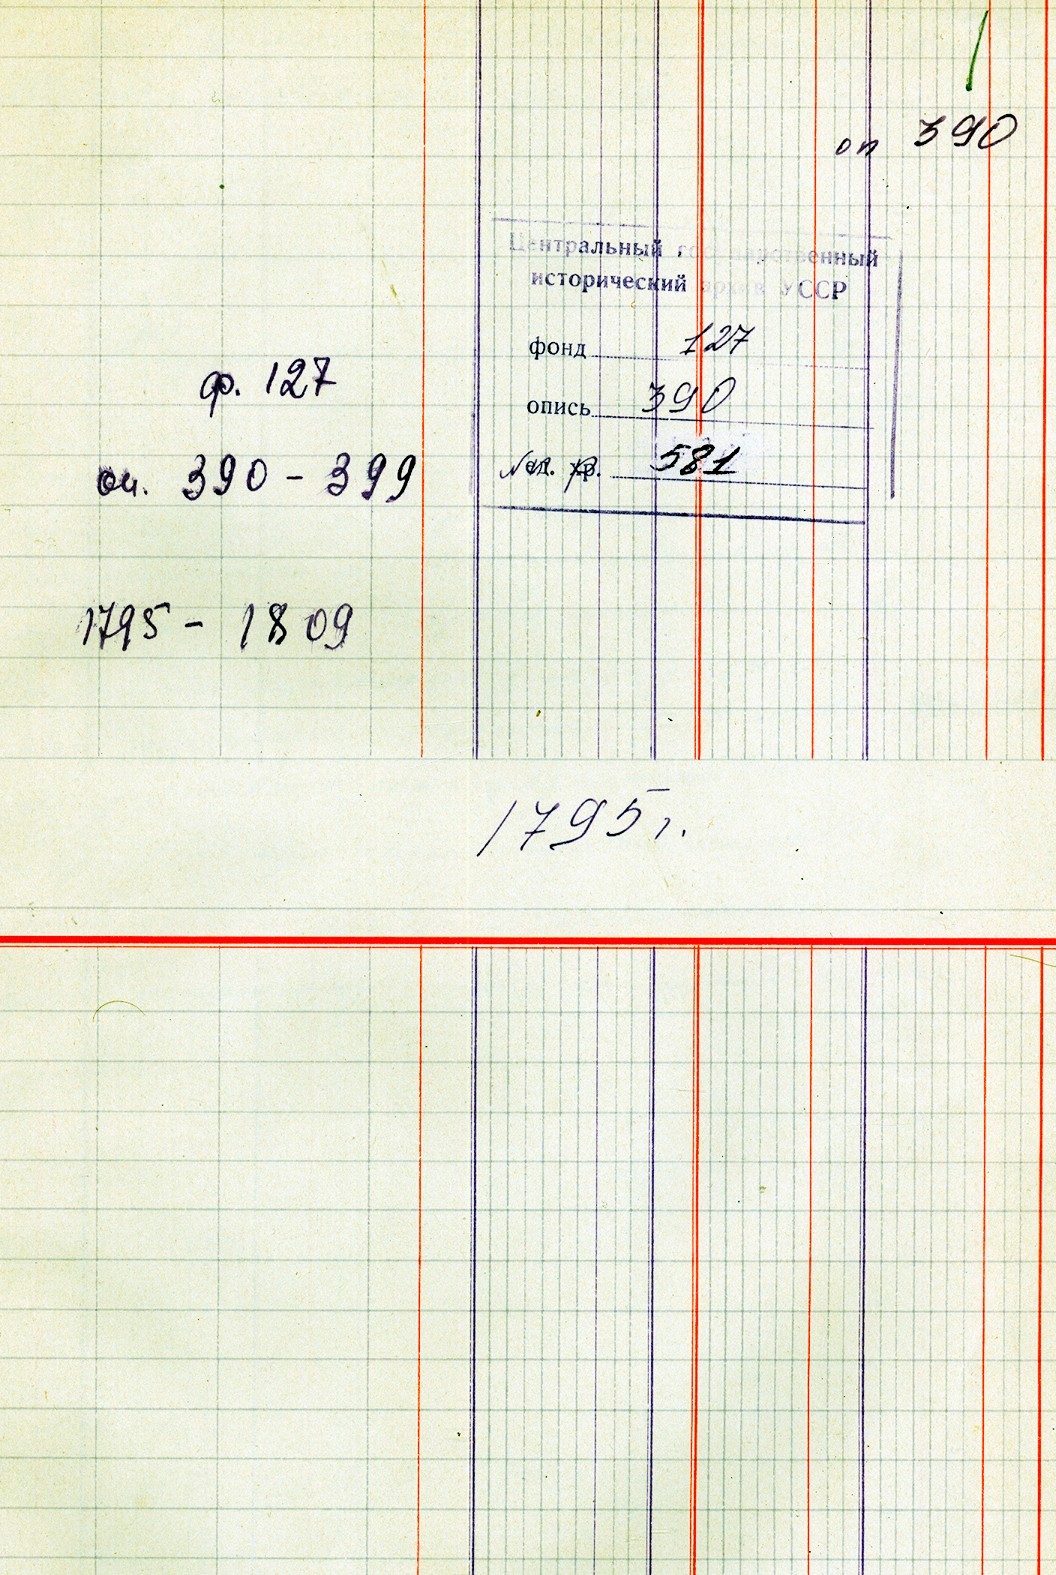 оп 390
Центральный государственный
исторический архив УССР
фонд 127
опись 390
№ ед. хр. 581
ф. 127
оп. 390 - 399
1795 - 1809
1795 г.